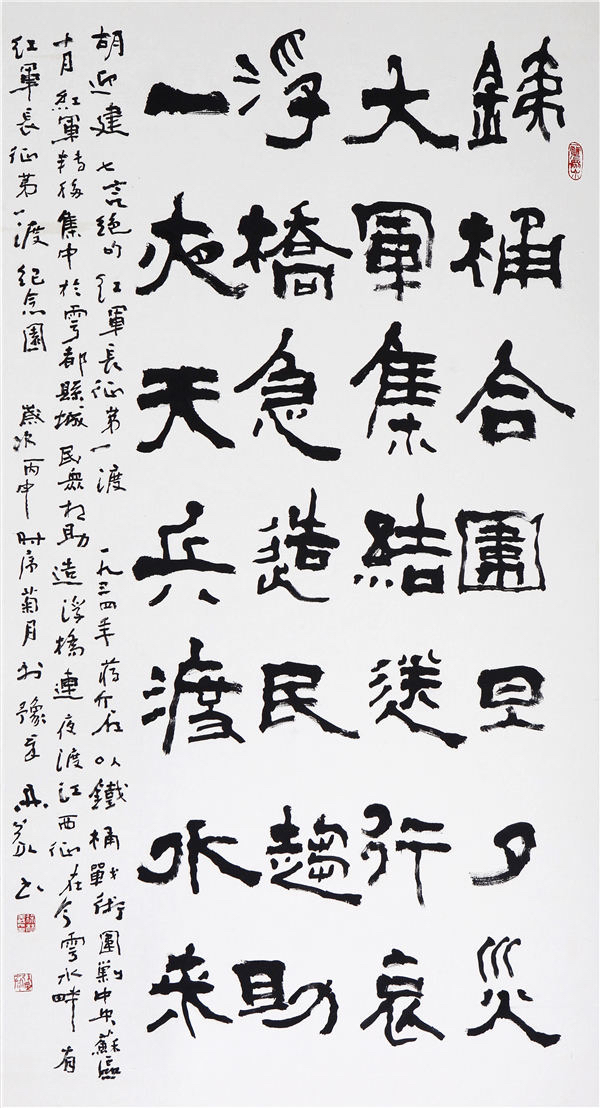 銕桶合圍旦夕災
大軍集結送行哀
浮橋急造民趨助
一夜天兵渡水来
胡迎建七言绝句 红軍長征第一渡 一九三四年蒋介石以鐵桶戰術圍剿中央蘇區
十月红軍轉移集中於雩都縣城民衆相助造浮橋連夜渡江西征在今雩水畔有
红軍長征第一渡纪念園 歲次丙申时序菊月於豫章 书